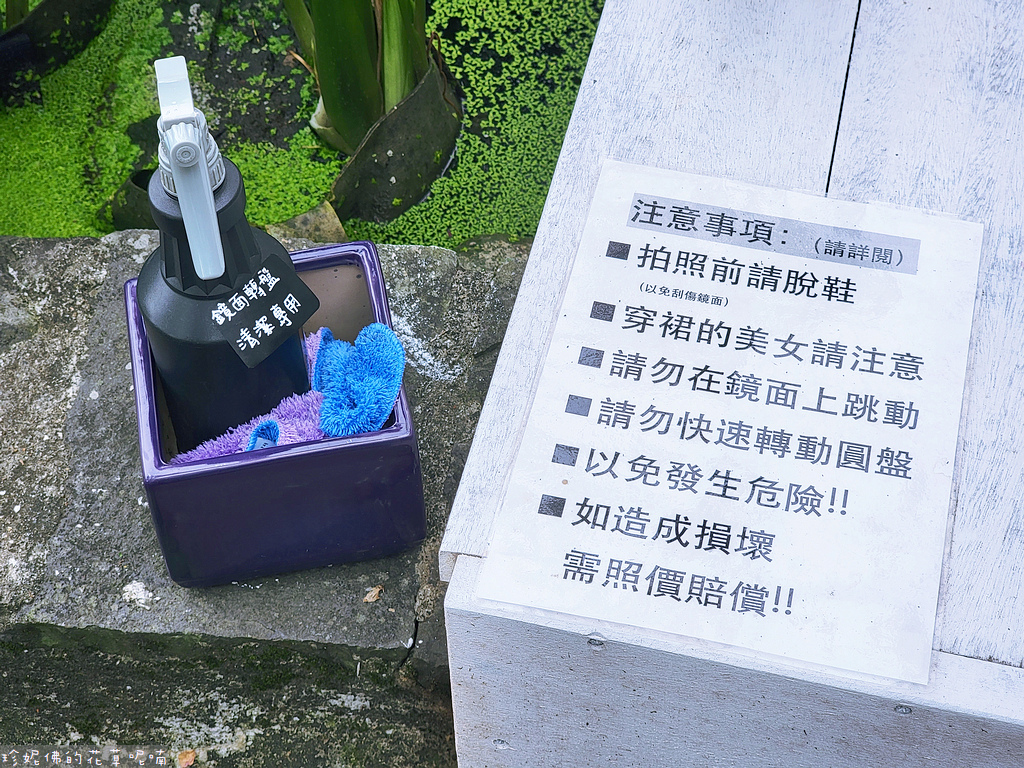 鏡面轉盤
清潔專用
注意事項：(請詳閱)
■拍照前請脫鞋
(以免刮傷鏡面)
■穿裙的美女請注意
■請勿在鏡面上跳動
■請勿快速轉動圓盤
■以免發生危險!!
■如造成損壞
需照價賠償!!
珍妮佛的花草呢喃